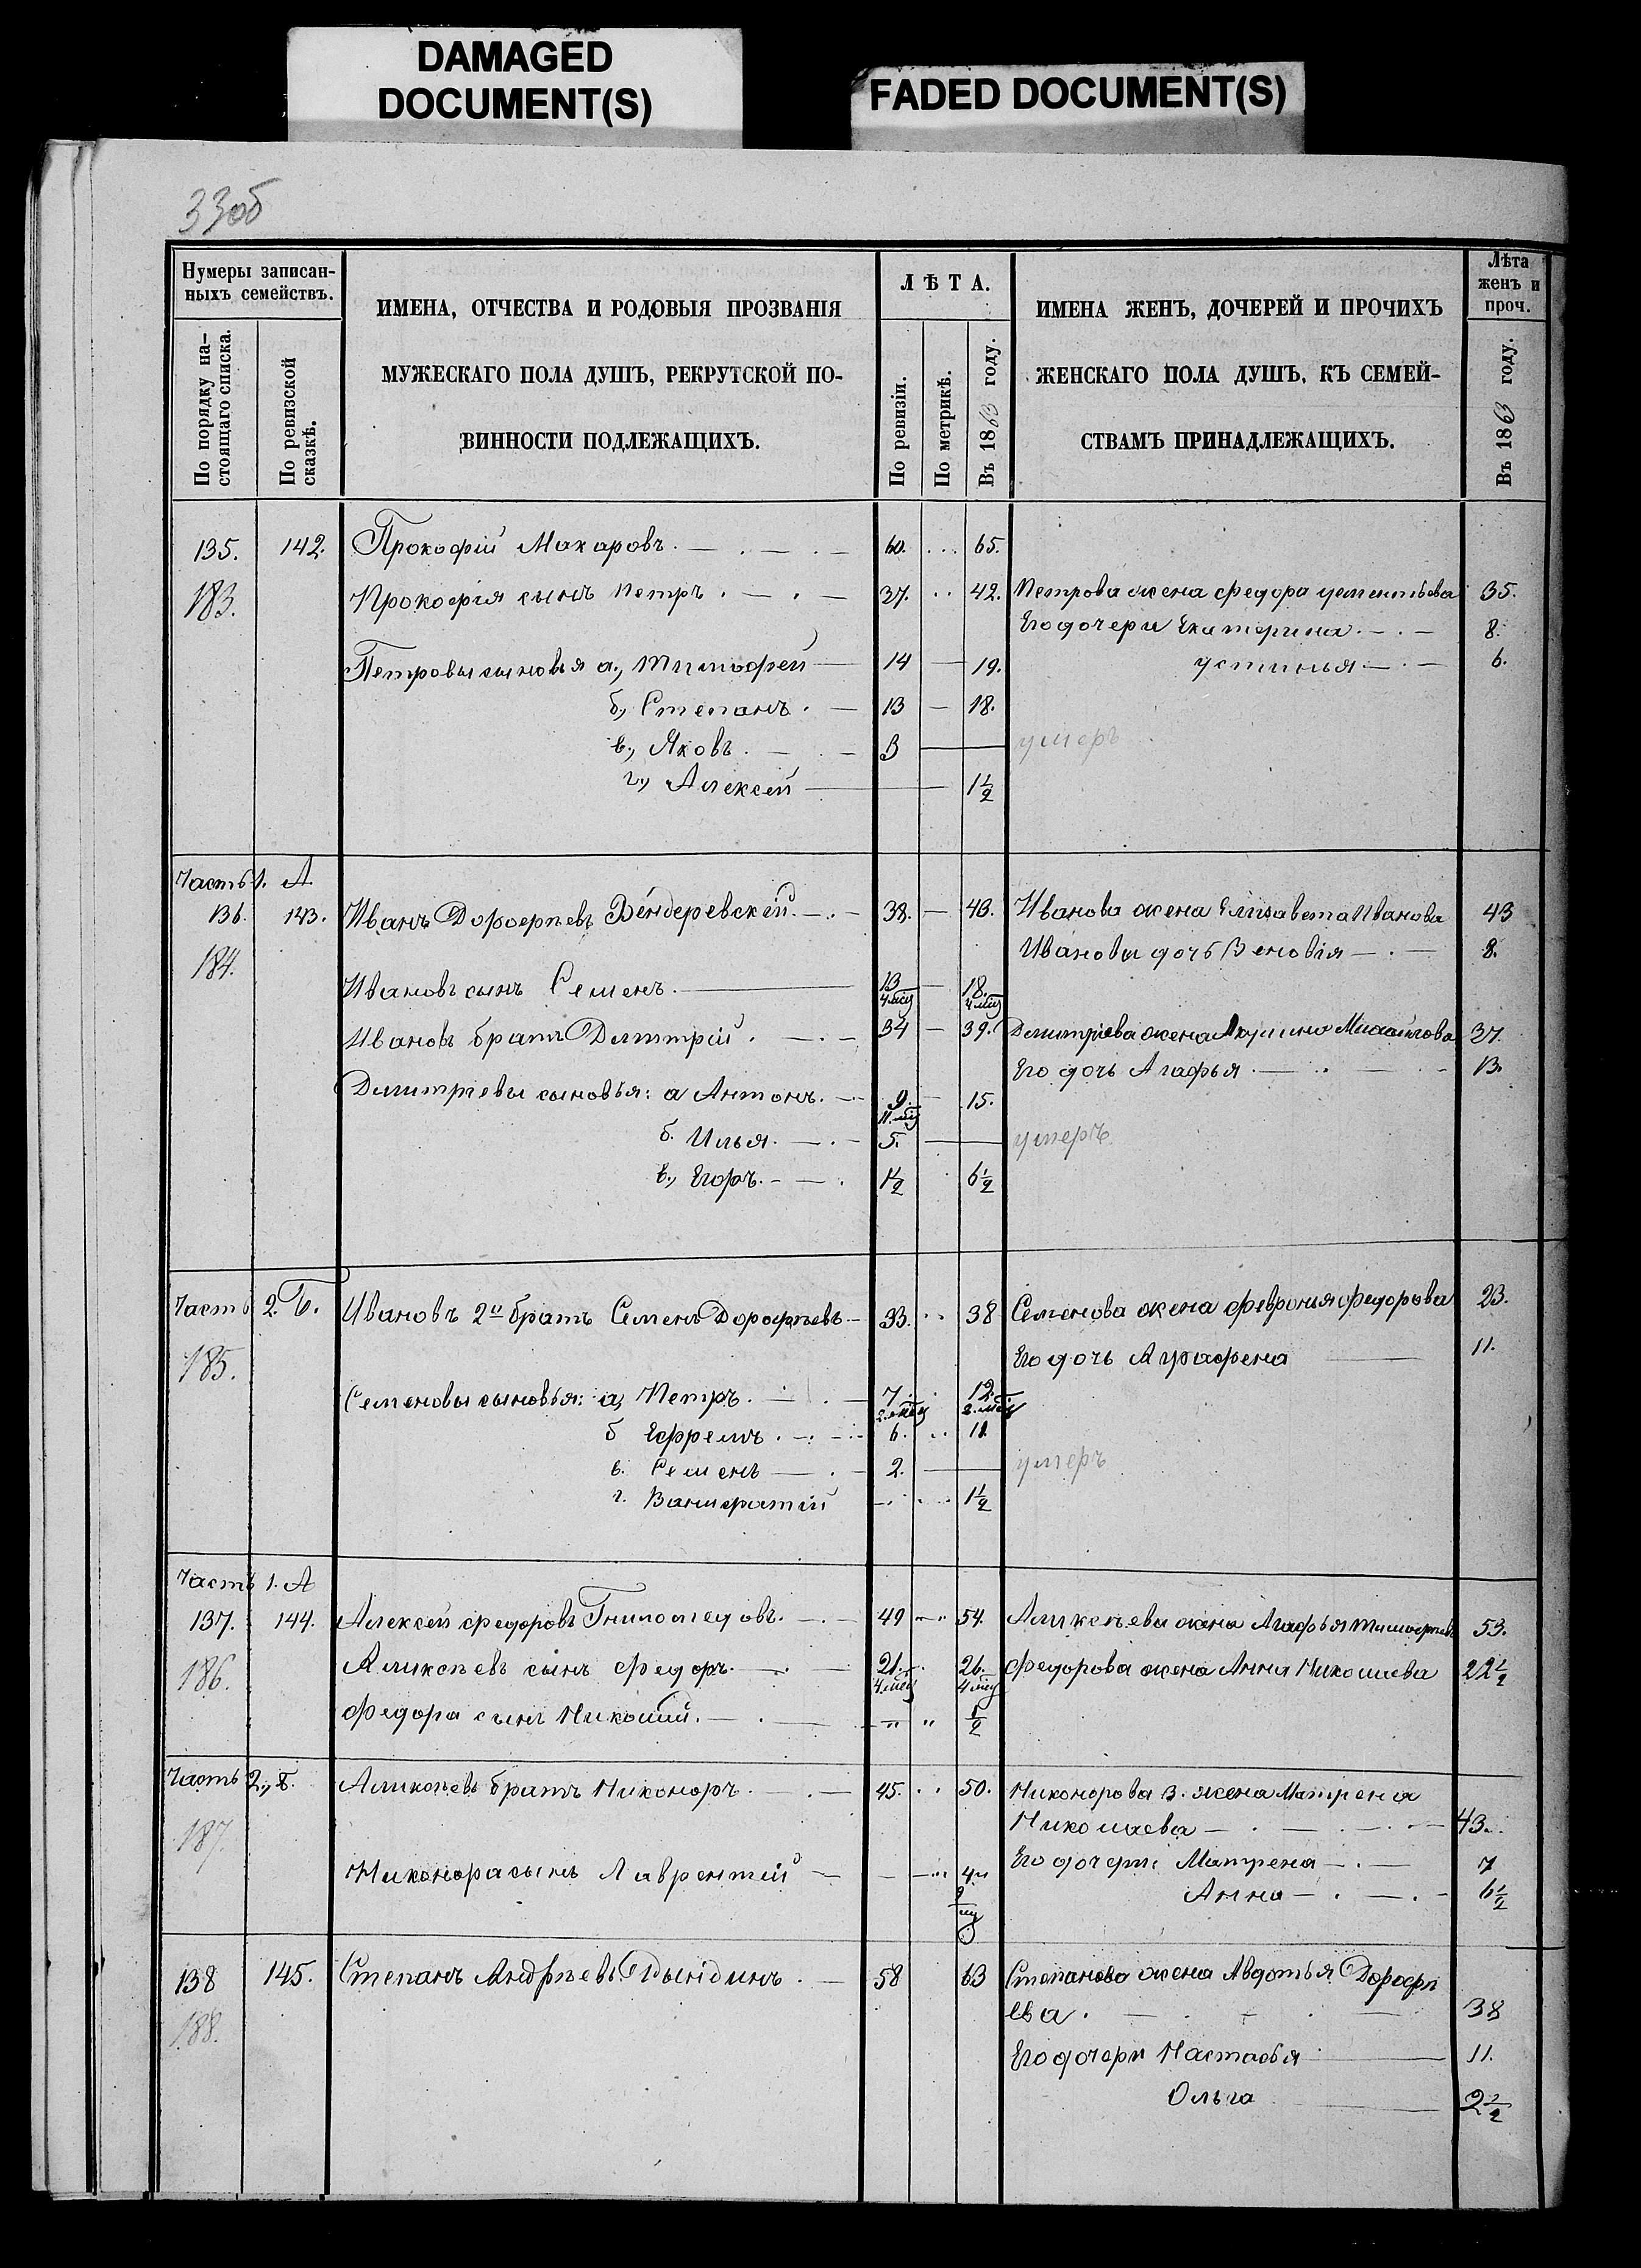 DAMAGED
DOCUMENT(S)
FADED DOCUMENT(S)
33об
Нумеры записан-
ныхъ семействъ.
По порядку на-
стоящаго списка.
По ревизской
сказкѣ.
ИМЕНА, ОТЧЕСТВА И РОДОВЫЯ ПРОЗВАНІЯ
МУЖЕСКАГО ПОЛА ДУШЪ, РЕКРУТСКОЙ ПО-
ВИННОСТИ ПОДЛЕЖАЩИХЪ.
ЛѢТА.
По ревизіи.
По метрикѣ.
Въ 1863 году.
ИМЕНА ЖЕНЪ, ДОЧЕРЕЙ И ПРОЧИХЪ
ЖЕНСКАГО ПОЛА ДУШЪ, КЪ СЕМЕЙ-
СТВАМЪ ПРИНАДЛЕЖАЩИХЪ.
Лѣта
женъ и
проч.
Въ 1863 году.
135. 142. Прокофій Макаровъ. 60. 65.
183. Прокофія сынъ Петръ. 37. 42. Петрова жена Федора 35.
Его дочери Екатерина. 8.
Петровы сыновья а., Тимофей 14 19. Устинья 6.
б., Степанъ. 13 18.
в., Яковъ. 3 умеръ
г., Алексей 1½
Часть 1. А
136. 143. Иванъ Дорофѣевъ Вендеревскій. 38. 43. Иванова жена Елизавета Иванова 43
184. Иванова дочь Зеновія 8.
Ивановъ сынъ Семенъ. 13 4 мѣц 18. 4 мѣц
Ивановъ братъ Дмитрій. 34 39. Дмитріева жена Акулина Михайлова 37.
Его дочь Агафья 13.
Дмитріевы сыновья: а Антонъ. 9. 11. мѣц 15.
б. Илья. 5. умеръ
в., Егоръ. 1½ 6½
Часть 2. Б. Ивановъ 2й братъ Семенъ Дорофѣевъ 33. 38 Семенова жена Февронья Федорова 23.
185. Его дочь Аграфена 11.
Семеновы сыновья: а, Петръ. 7. 2. мѣц 12. 2. мѣц
б Ефремъ. 6. 11.
в. Семенъ 2. умеръ
г. 1½
Часть 1. А
137. 144. Алексей Федоровъ Гниломедовъ. 49 54. Алексѣева жена Агафья 53.
186. Алексѣевъ сынъ Федоръ. 21. 4. мѣц 26. 4 мѣц Федорова жена Анна Николаева 22½
Федора сынъ Николай. ½
Часть 2., Б. Алексѣевъ братъ Никоноръ. 45. 50. Никонорова 3. жена Матрена
187. Николаева 43.
Никонора сынъ Лаврентій 4 мц Его дочери: Матрена 7
Анна 6½
138 145. Степанъ Андрѣевъ 58 63 Степанова жена Авдотья Дорофѣ
188. ева. 38
Его дочери Настасья 11.
Ольга 2½